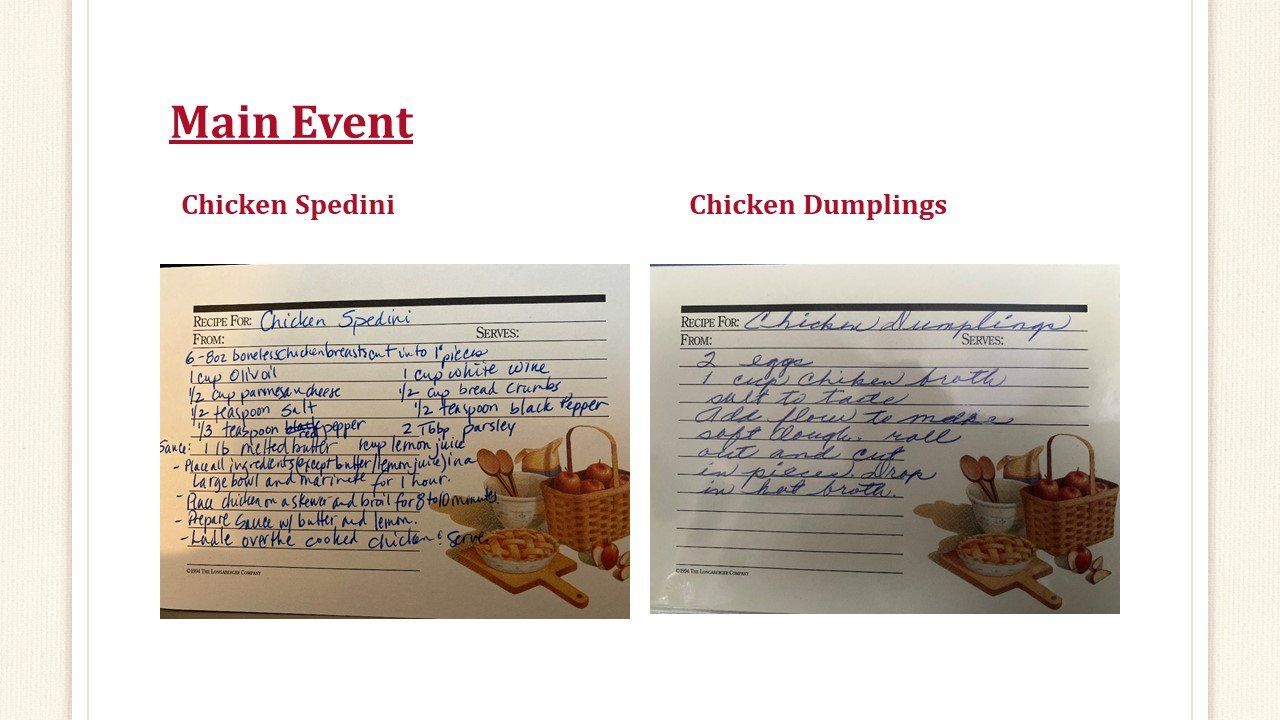 Main Event
Chicken Spedini
Chicken Dumplings
RECIPE FOR: Chicken Spedini
FROM: SERVES:
6-8oz boneless chicken breast cut into 1" pieces
1 cup Oliv oil 1 cup white wine
1/2 cup parmesan cheese 1/2 cup bread crumbs
1/2 teaspoon salt 1/2 teaspoon black Pepper
1/3 teaspoon red pepper 2 Tbsp parsley
Sauce: 1 lb melted butter 1 cup lemon juice
- Place all ingredients (except butter/lemon juice) in a
large bowl and marinate for 1 hour.
- Place chicken on a skewer and broil for 8 to 10 minutes
- Prepare sauce w/ butter and lemon.
- Ladle over the cooked chicken & serve
©1994 THE LONGABERGER COMPANY
RECIPE FOR: Chicken Dumplings
FROM: SERVES:
2 eggs
1 cup chiken broth
salt to taste
Add flour to make
soft dough. roll
out and cut
in pieces. Drop
in hot broth.
©1994 THE LONGABERGER COMPANY